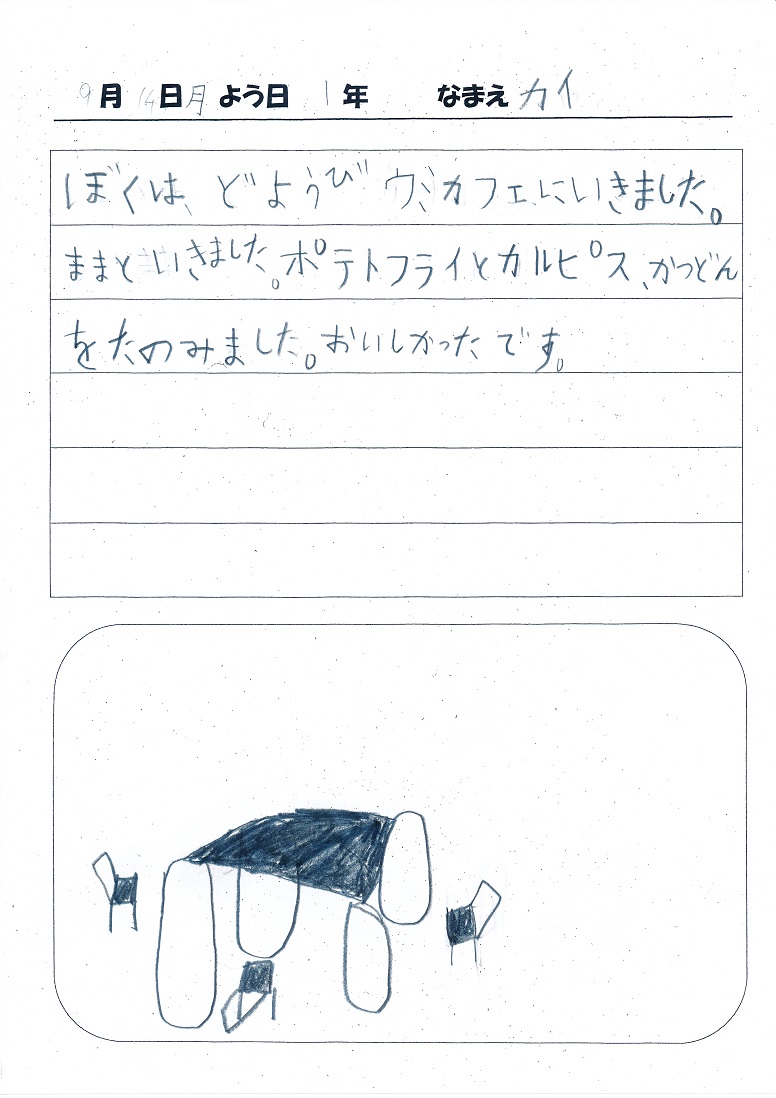 9月14日月よう日 1年 なまえ カイ
ぼくは、どようび ウミカフェにいきました。
ままといきました。ポテトフライとカルピス、かつどん
をたのみました。おいしかったです。